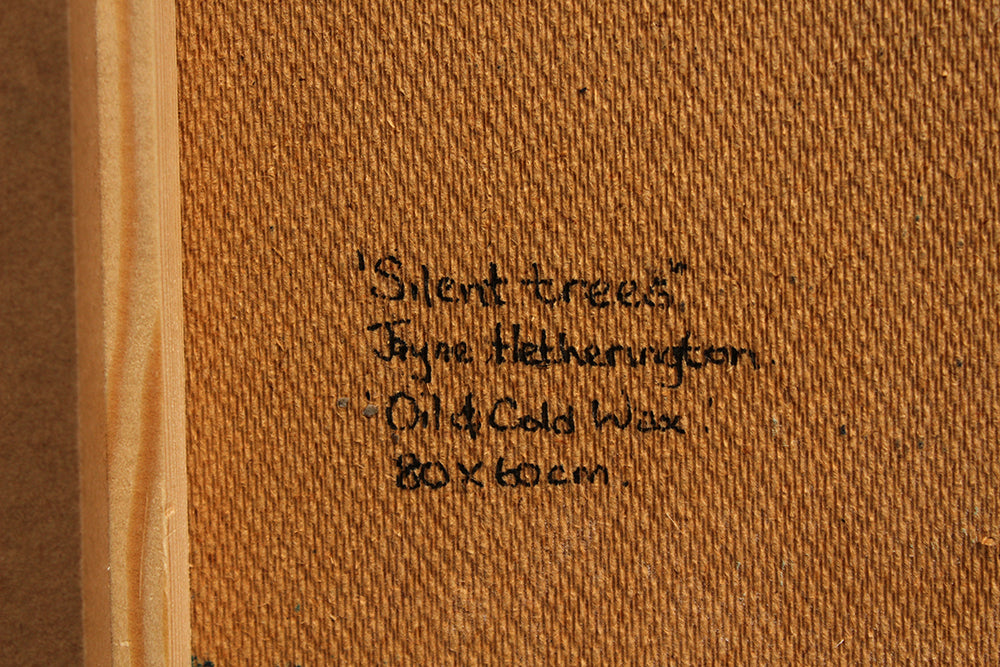 'Silent trees"
Jayne Hetherington.
'Oil & Cold Wax'.
80 x 60 cm.